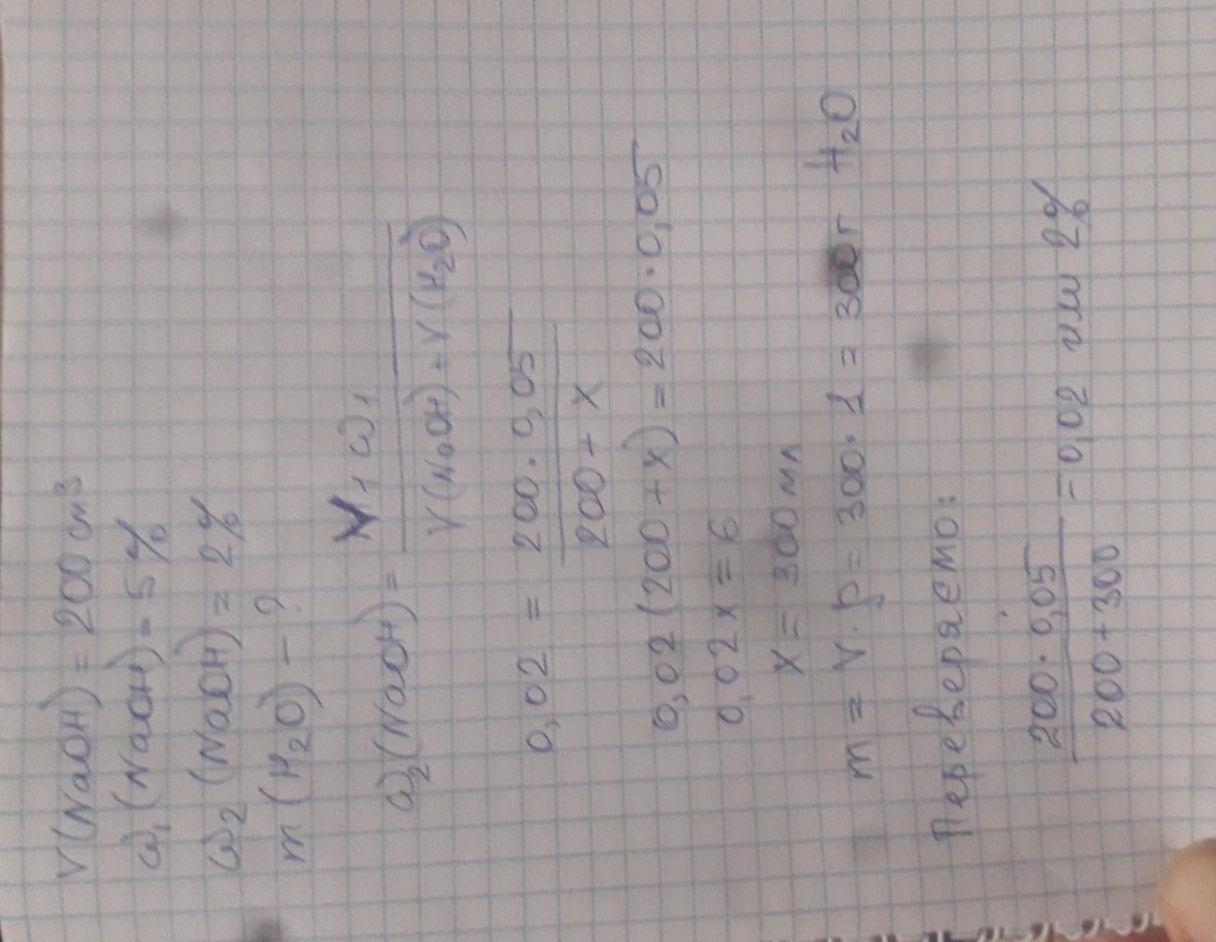 V(NaOH) = 200 см³
ω₁(NaOH) = 5%
ω₂(NaOH) = 2%
m(H₂O) - ?
ω₂(NaOH) = V₁ω₁ / V(NaOH) + V(H₂O)
0,02 = 200 · 0,05 / 200 + x
0,02(200 + x) = 200 · 0,05
0,02x = 6
x = 300 мл
m = V · ρ = 300 · 1 = 300 г H₂O
Переверяемо:
200 · 0,05 / 200 + 300 = 0,02 или 2%